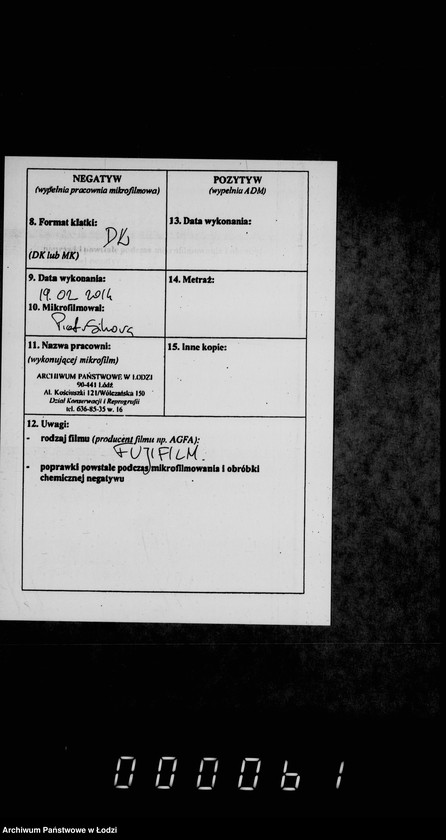 NEGATYW
(wypełnia pracownia mikrofilmowa)
POZYTYW
(wypełnia ADM)
8. Format klatki:
DK
(DK lub MK)
13. Data wykonania:
9. Data wykonania:
19.02 2014
10. Mikrofilmował:
Piotr Sikora
14. Metraż:
11. Nazwa pracowni:
(wykonującej mikrofilm)
ARCHIWUM PAŃSTWOWE W ŁODZI
90-441 Łódź
Al. Kościuszki 121/Wólczańska 150
Dział Konserwacji i Reprografii
tel. 636-85-35 w. 16
15. Inne kopie:
12. Uwagi:
- rodzaj filmu (producent filmu np. AGFA):
FUJIFILM.
- poprawki powstałe podczas mikrofilmowania i obróbki
chemicznej negatywu
0000b1
Archiwum Państwowe w Łodzi